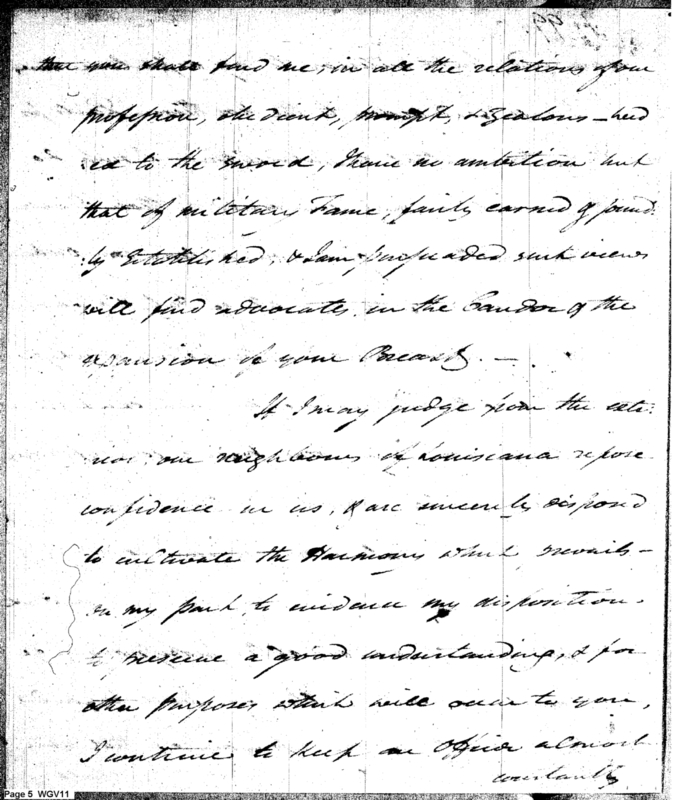 that you shall find me, in all the relations of our
profession, obedient, prompt, & Zealous – bred
ed to the sword, I have no ambition but
that of military Fame, fairly earned & sound
ly Established, & I am persuaded such views
will find advocates, in the Candor & the
expansion of your Breast. —
If I may judge from the exte:
rior; our neighbours of Louisiana repose
confidence in us, & are sincerely disposed
to cultivate the Harmony which prevails –
on my part, to evidence my disposition
to preserve a good understanding, & for
other purposes which will occur to you,
I continue to keep an Officer almost
constantly
Page 5 WGV11